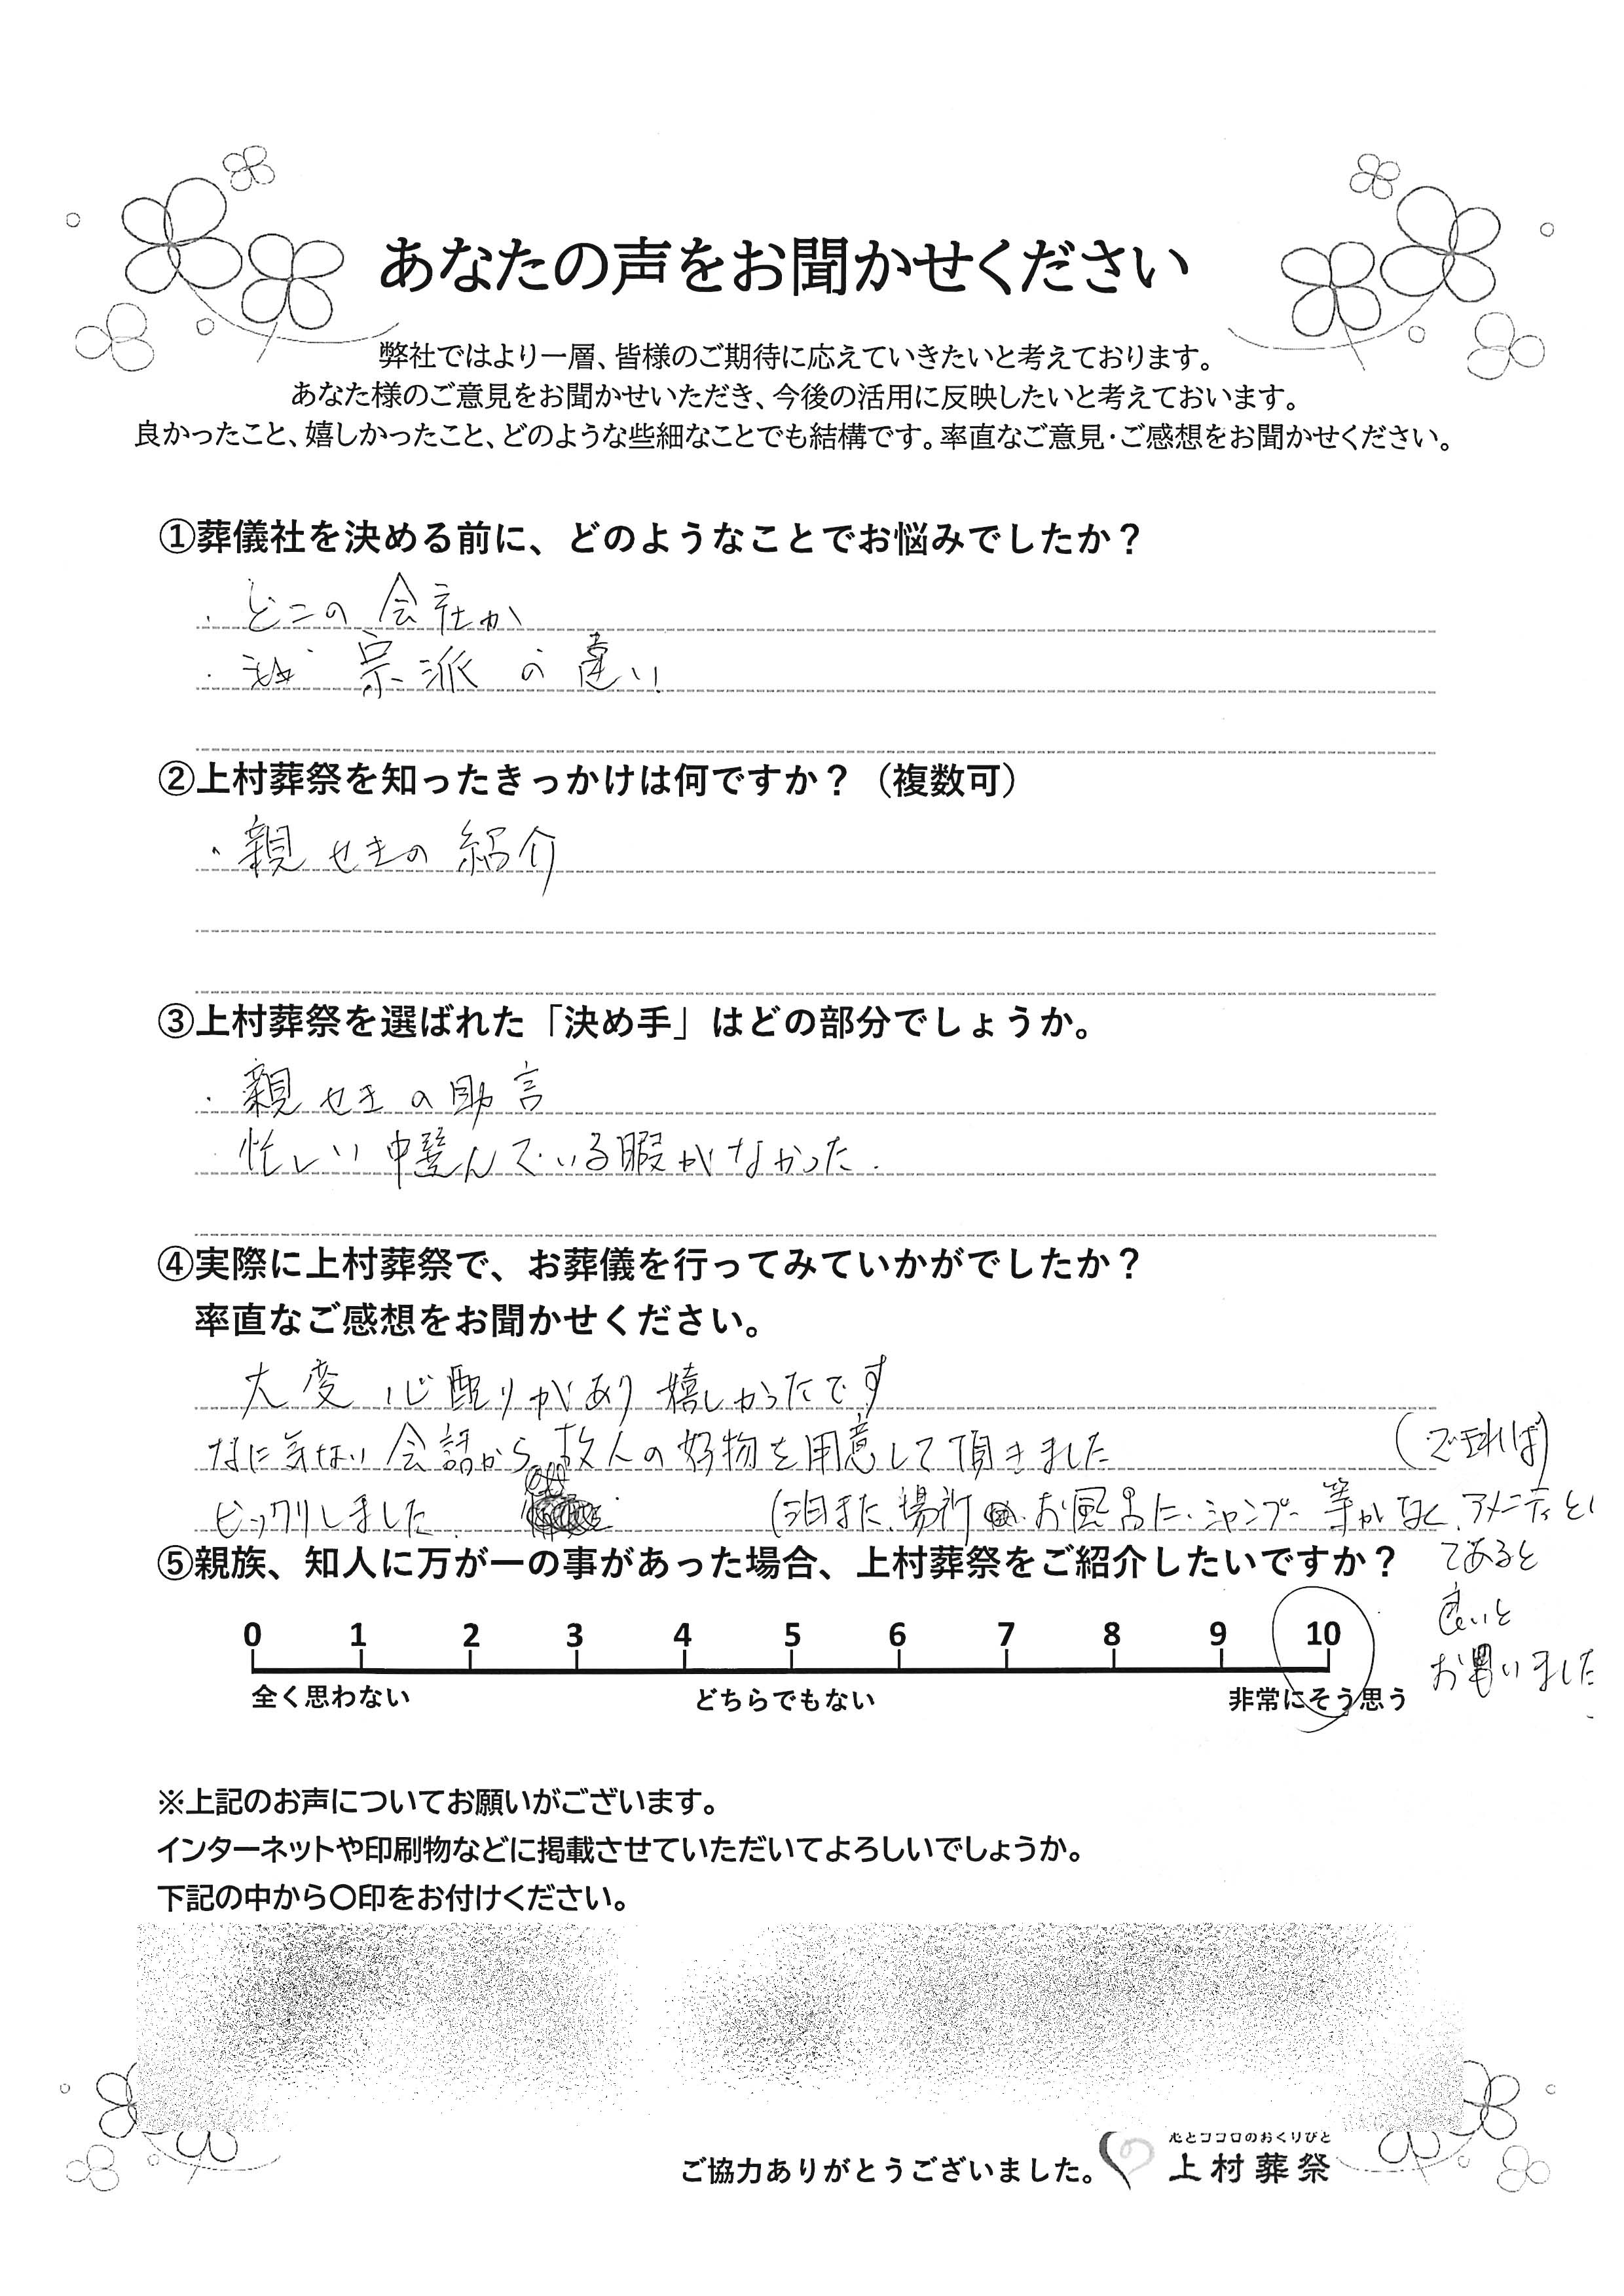 あなたの声をお聞かせください
弊社ではより一層、皆様のご期待に応えていきたいと考えております。
あなた様のご意見をお聞かせいただき、今後の活用に反映したいと考えておいます。
良かったこと、嬉しかったこと、どのような些細なことでも結構です。率直なご意見・ご感想をお聞かせください。
①葬儀社を決める前に、どのようなことでお悩みでしたか？
・どこの会社か
・宗派の違い
②上村葬祭を知ったきっかけは何ですか？（複数可）
・親せきの紹介
③上村葬祭を選ばれた「決め手」はどの部分でしょうか。
・親せきの助言
・忙しい中選んでいる暇がなかった.
④実際に上村葬祭で、お葬儀を行ってみていかがでしたか？
率直なご感想をお聞かせください。
大変心配りがあり嬉しかったです
なに気ない会話から故人の好物を用意して頂きました
ビックリしました.
(できれば)
(泊また場所 お風呂に、シャンプー等がなく、アメニティとし
てあると
良いと
お思いました
⑤親族、知人に万が一の事があった場合、上村葬祭をご紹介したいですか？
0 1 2 3 4 5 6 7 8 9 10
全く思わない どちらでもない 非常にそう思う
※上記のお声についてお願いがございます。
インターネットや印刷物などに掲載させていただいてよろしいでしょうか。
下記の中から〇印をお付けください。
ご協力ありがとうございました。
心とココロのおくりびと
上村葬祭